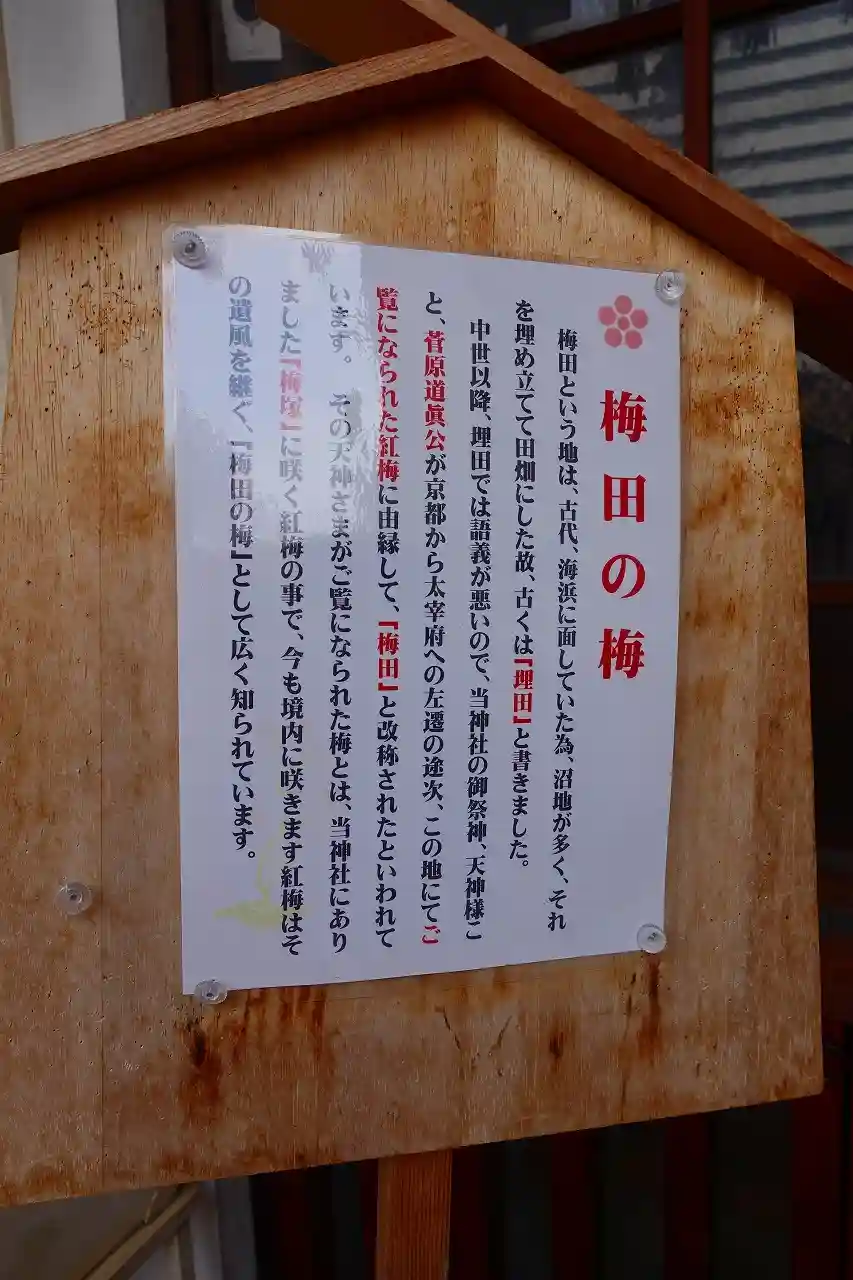 梅田の梅
梅田という地は、古代、海浜に面していた為、沼地が多く、それ
を埋め立てて田畑にした故、古くは『埋田』と書きました。
中世以降、埋田では語義が悪いので、当神社の御祭神、天神様こ
と、菅原道眞公が京都から太宰府への左遷の途次、この地にてご
覧になられた紅梅に由縁して、『梅田』と改称されたといわれて
います。その天神さまがご覧になられた梅とは、当神社にあり
ました『梅塚』に咲く紅梅の事で、今も境内に咲きます紅梅はそ
の遺風を継ぐ、『梅田の梅』として広く知られています。